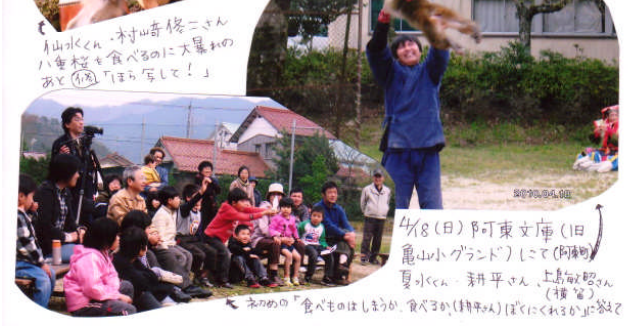 仙水くん・村山奇修二さん
八重桜を食べるのに大暴れの
あと(修)「ほら写して！」
2010.04.18
4/18(日)阿東文庫(旧
亀山小グランド)にて(阿東町)
夏水くん・耕平さん、上島敏昭さん
(横笛)
初めの「食べものはしまうか、食べるか(耕平さん)ぼくにくれるか」に答えて